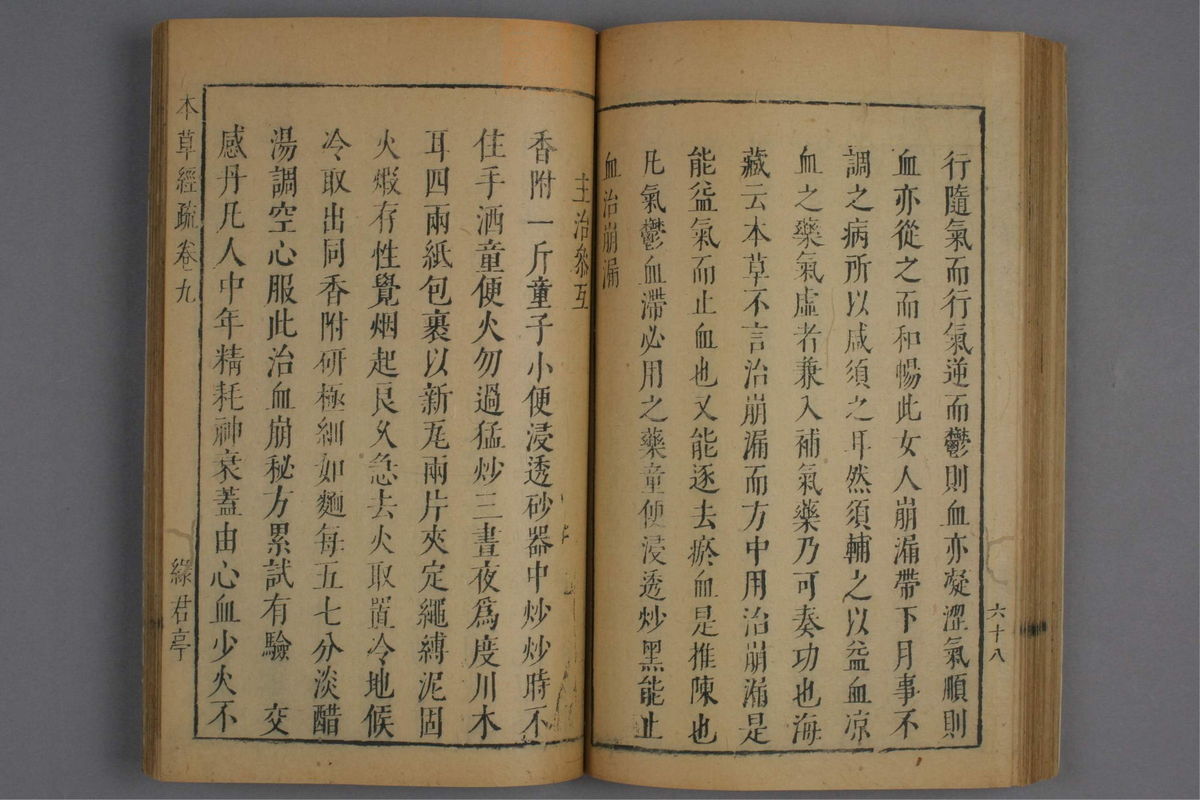 行隨氣而行氣逆而鬱則血亦凝澀氣順則
血亦從之而和暢此女人崩漏帶下月事不
調之病所以咸須之耳然須輔之以益血凉
血之藥氣虛者兼入補氣藥乃可奏功也海
藏云本草不言治崩漏而方中用治崩漏是
能益氣而止血也又能逐去瘀血是推陳也
凡氣鬱血滯必用之藥童便浸透炒黑能止
血治崩漏
六十八
主治參互
香附一斤童子小便浸透砂器中炒炒時不
住手洒童便火勿過猛炒三晝夜爲度川木
耳四兩紙包裹以新瓦兩片夾定繩縛泥固
火煅存性覺烟起良久急去火取置冷地候
冷取出同香附研極細如麵每五七分淡醋
湯調空心服此治血崩秘方累試有驗 交
感丹凡人中年精耗神衰蓋由心血少火不
本草經疏卷九
綠君亭